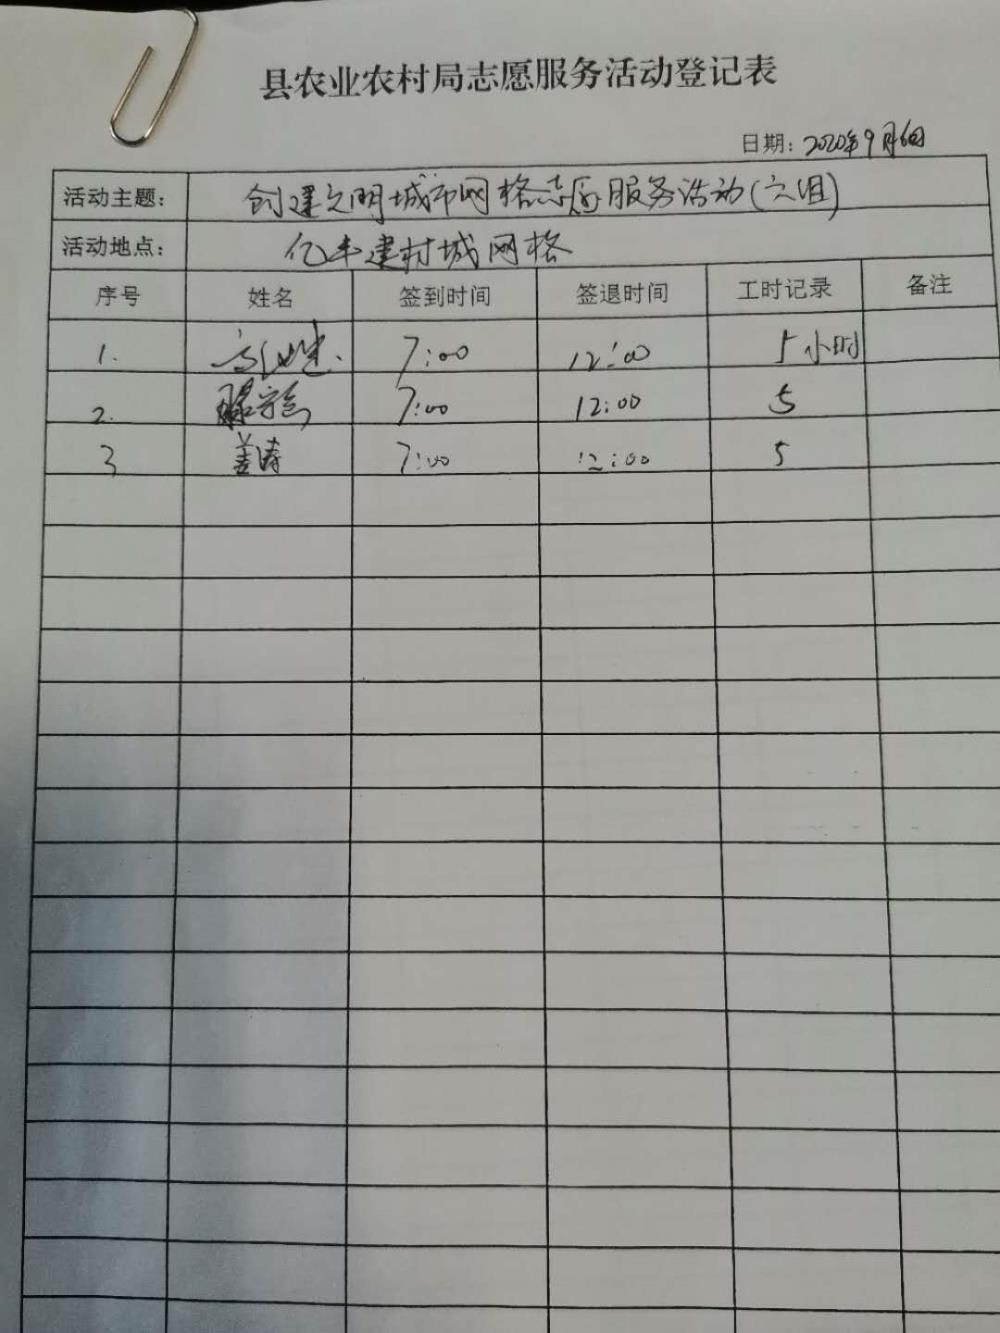 县农业农村局志愿服务活动登记表
日期：2020年9月6日
活动主题： 创建文明城市网格志愿服务活动(六组)
活动地点： 亿丰建材城网格
序号 姓名 签到时间 签退时间 工时记录 备注
1. 7:00 12:00 5小时
2. 7:00 12:00 5
3 姜涛 7:00 12:00 5